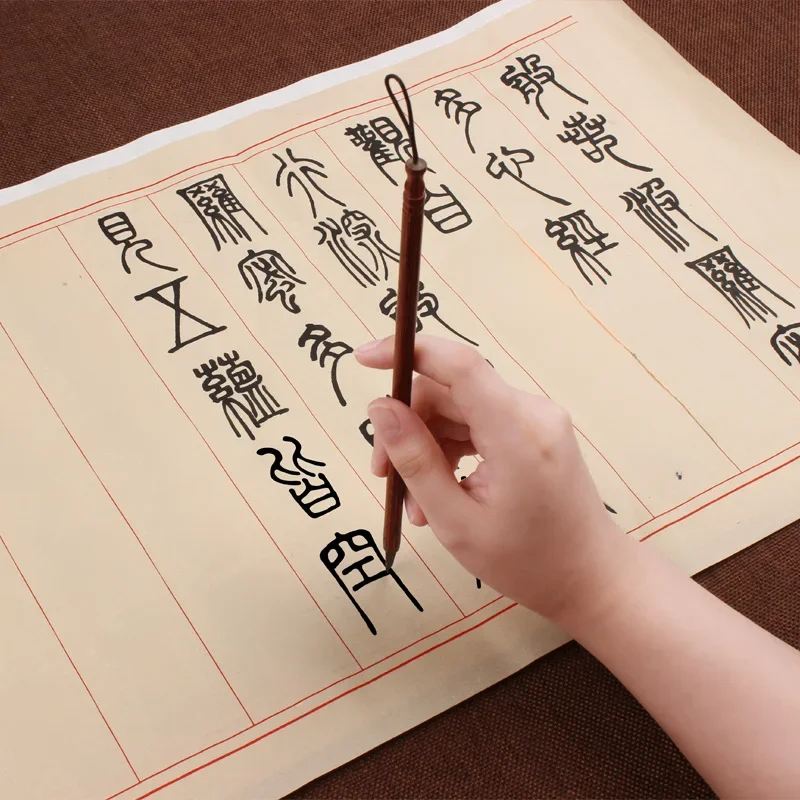 般若波羅
多心經
觀自
行深般
羅蜜多
見五蘊皆空